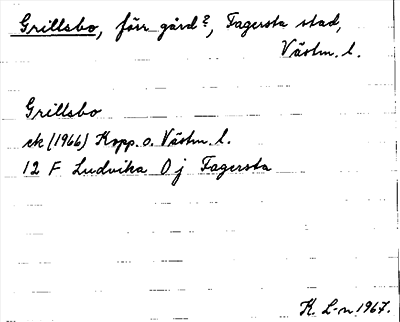 Grillsbo, förr gård?, Fagersta stad,
Västm. l.
Grillsbo
ek (1966) Kopp. o. Västm. l.
12 F Ludvika 0 j Fagersta
K. L-n 1967.